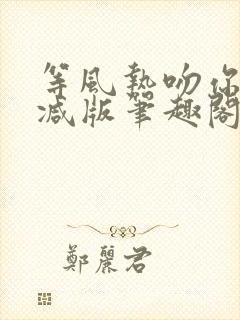 等風熱吻你
减版筆趣閣
鄭麗君